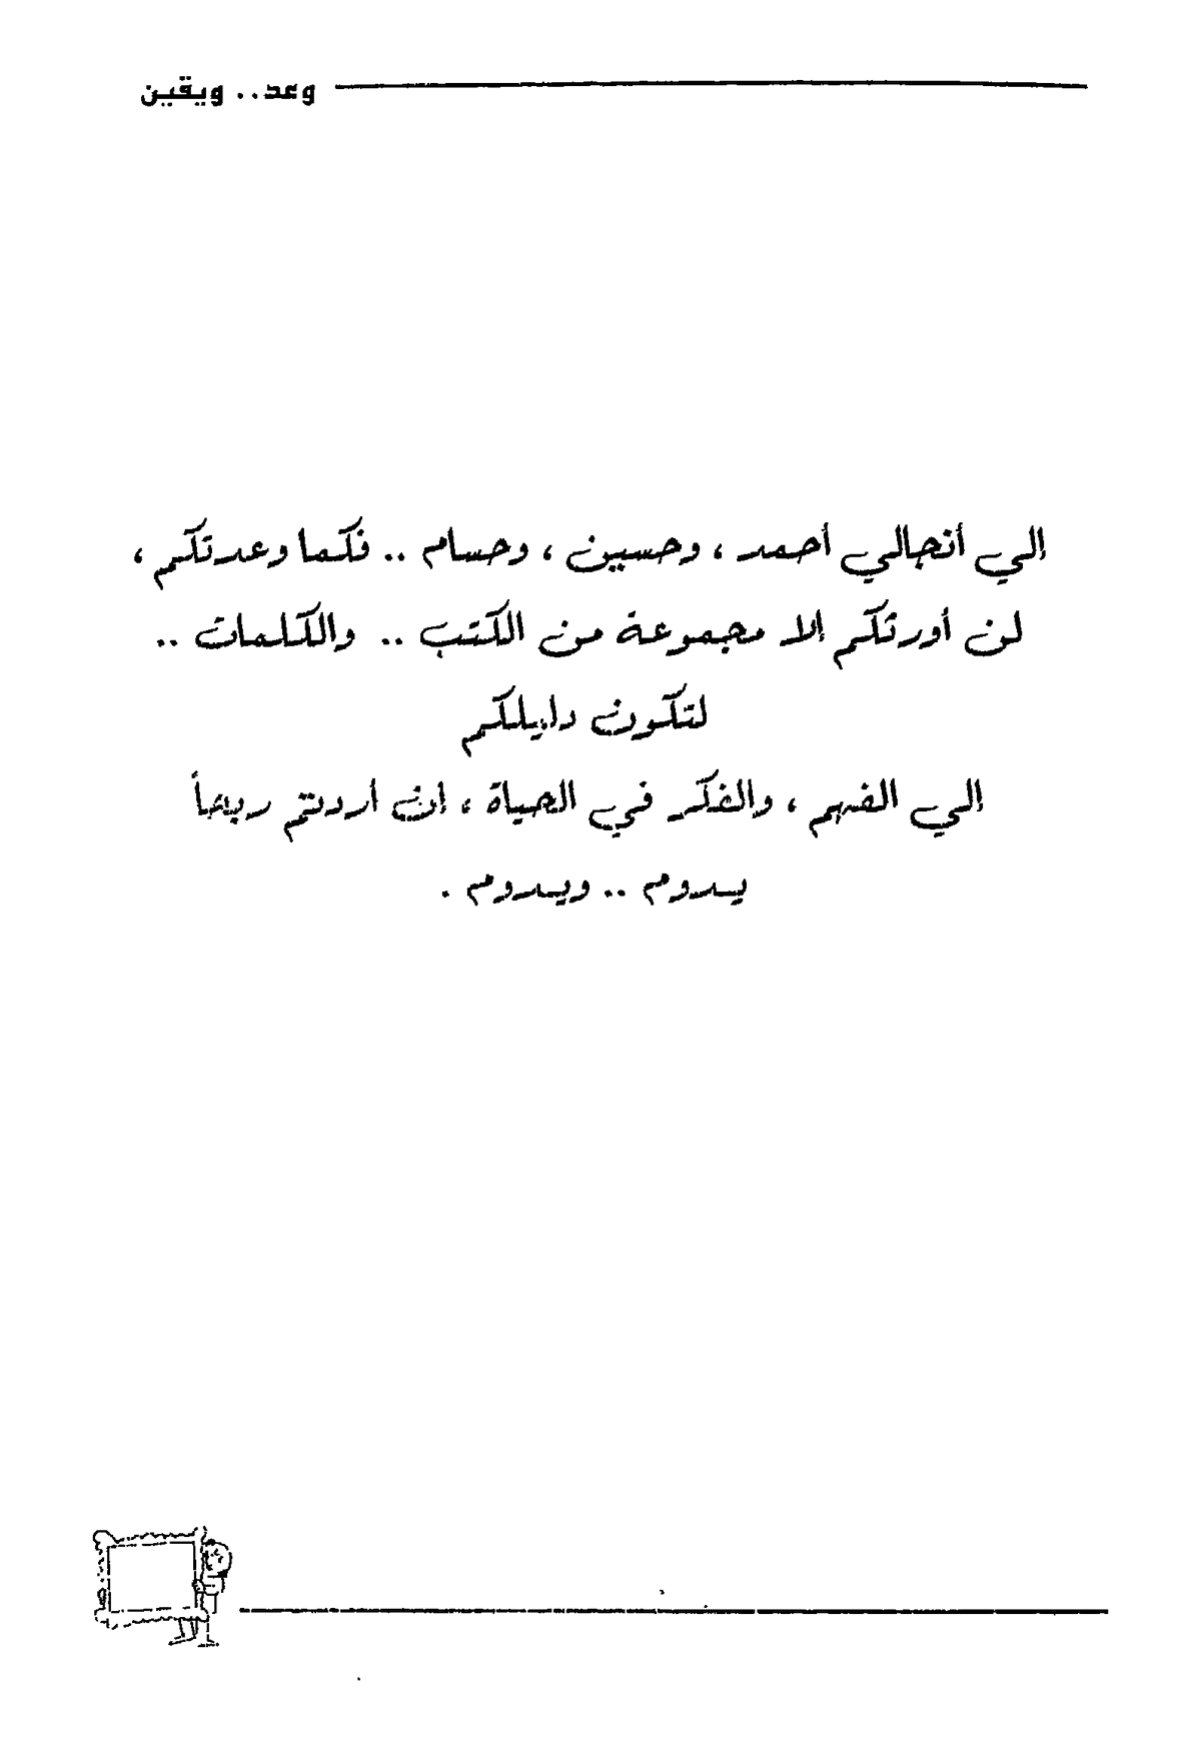 وعد.. ويقين
إلي أنجالي أحمد ، وحسين ، وحسام .. فكما وعدتكم ،
لن أورثكم إلا مجموعة من الكتب .. والكلمات ..
لتكون دليلكم
إلي الفهم ، والفكر في الحياة ، إن أردتم ربحاً
يدوم .. ويدوم .